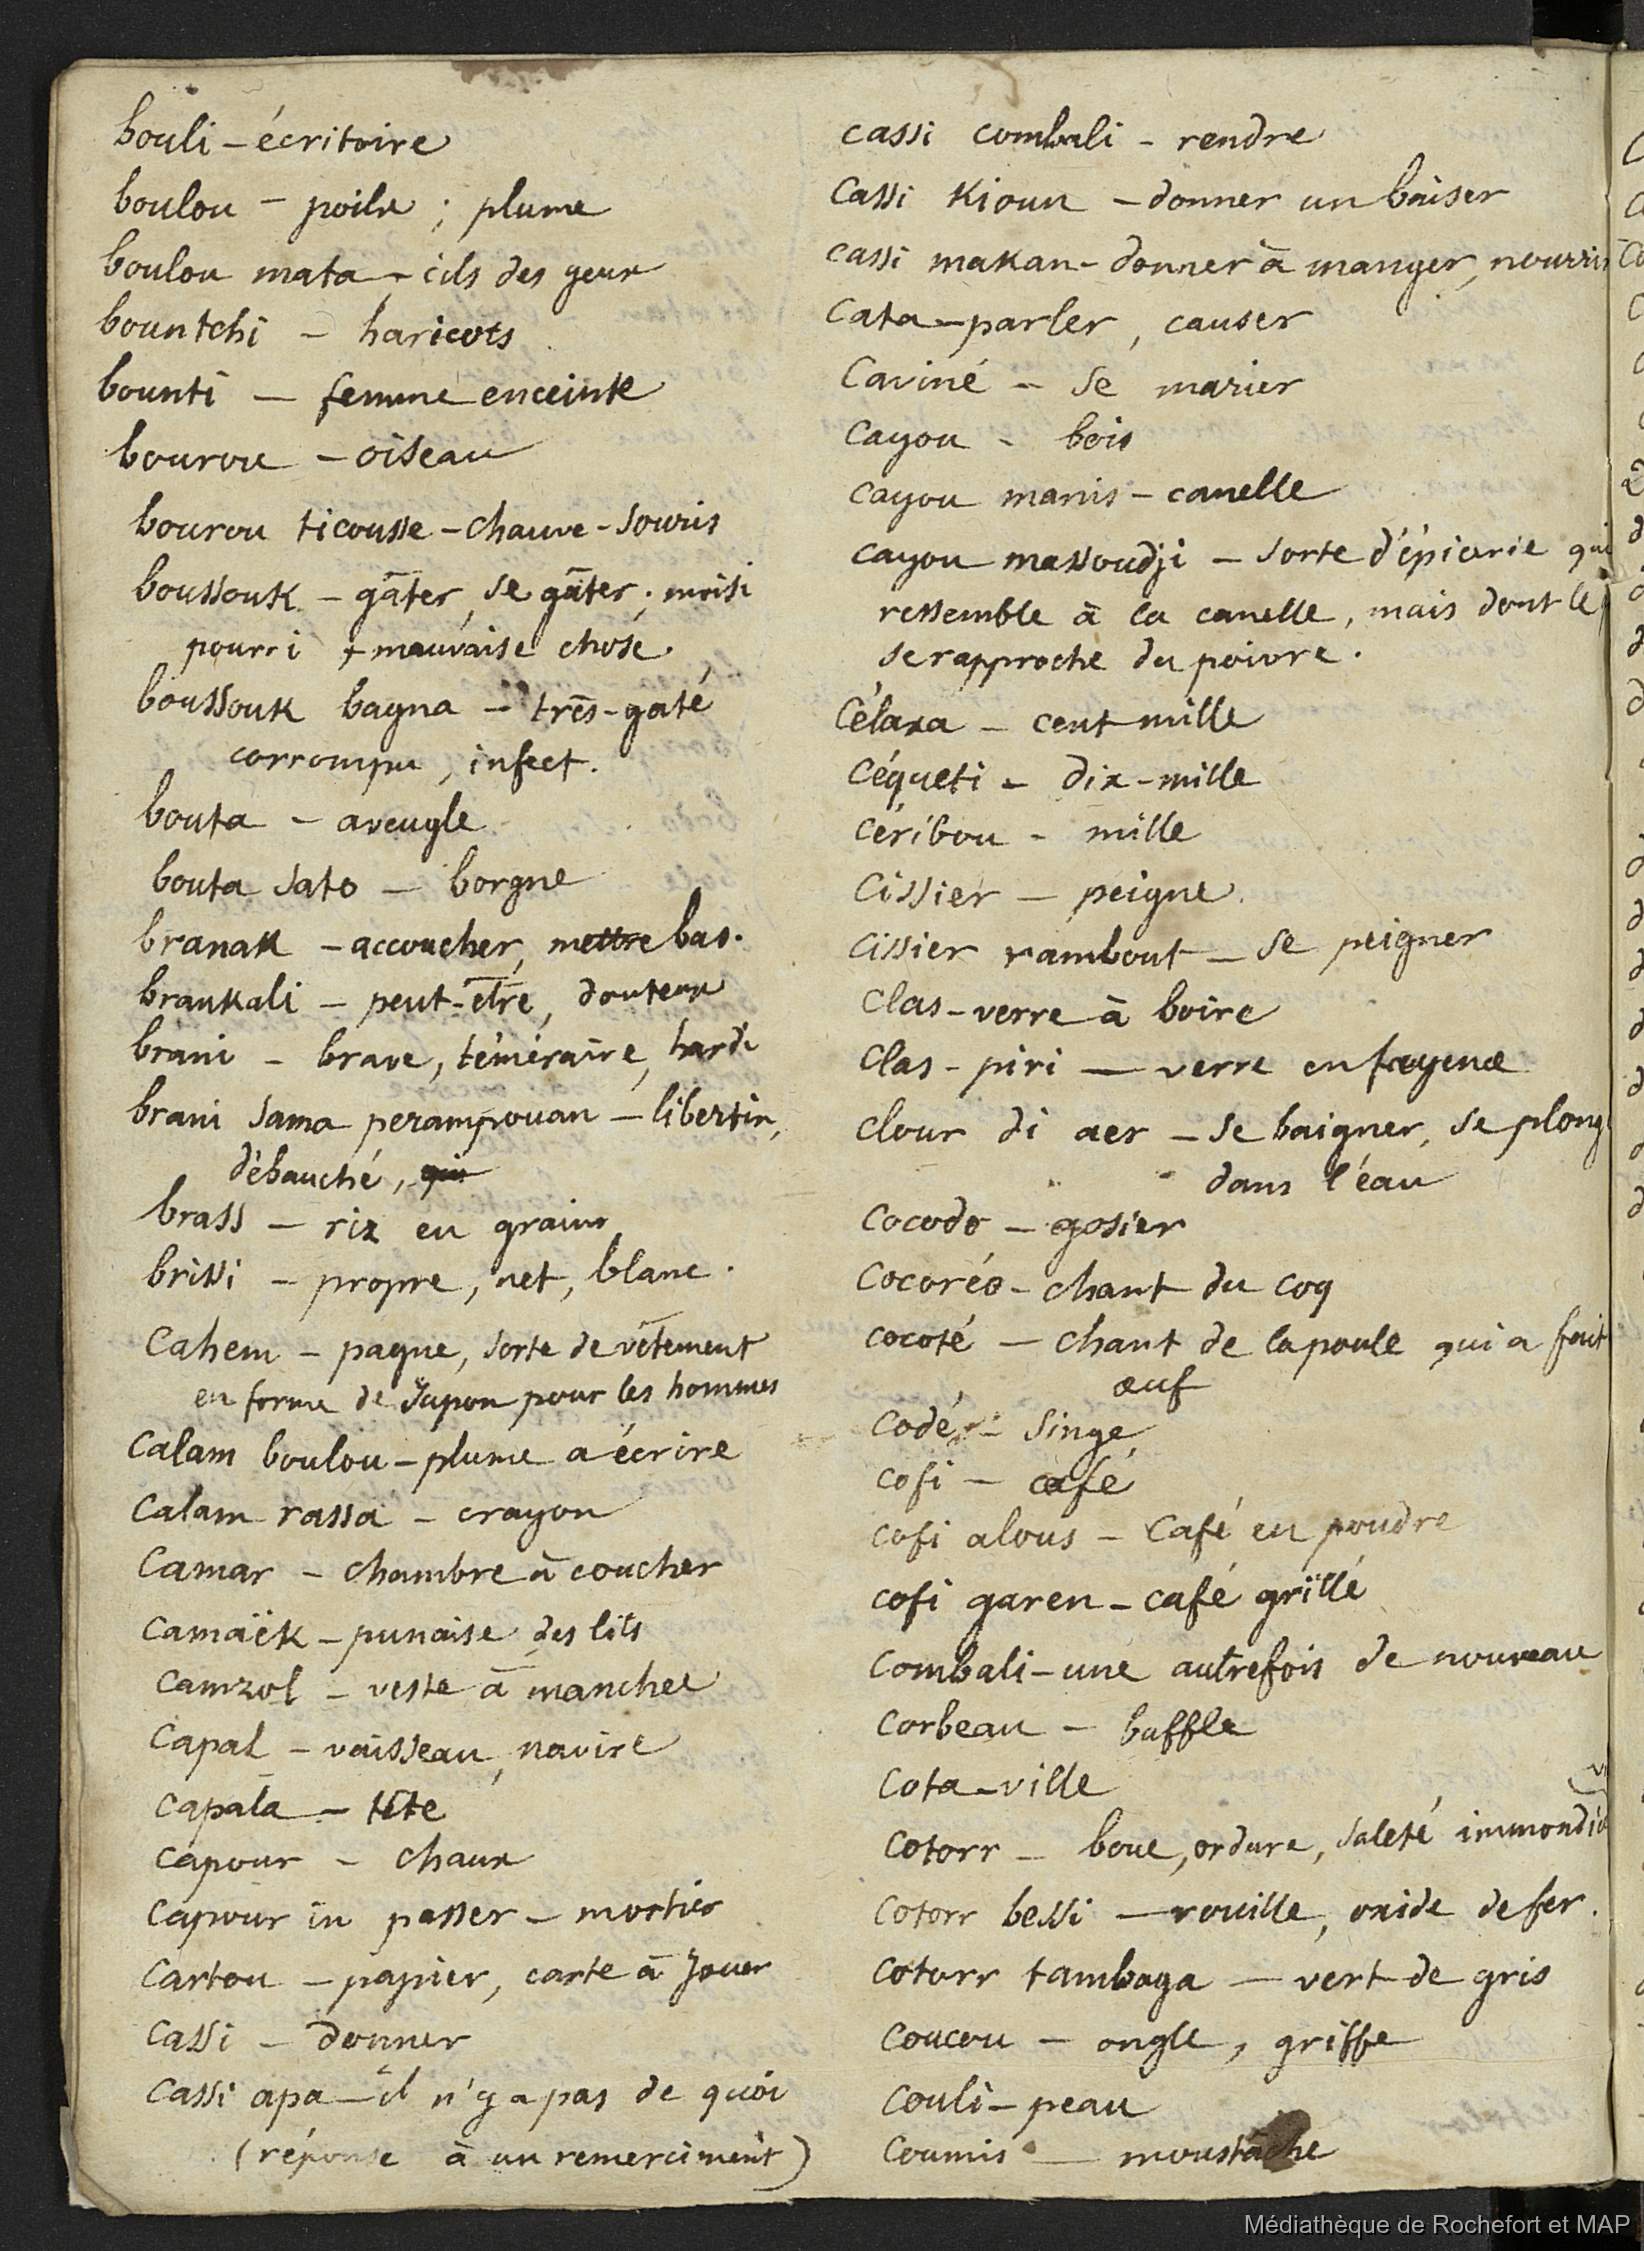 bouli – écritoire
boulou – poile ; plume
boulou mata – cils des yeux
bountchi – haricots
bounti – femme enceinte
bourou – oiseau
bourou ticousse – chauve-souris
boussouk – gâter, se gâter ; moisi
pourri + mauvaise chose.
boussouk bagna – très-gaté
corrompu, infect.
bouta – aveugle
bouta sato – borgne
branak – accoucher, mettre bas.
brankali – peut-être, douteux
brani – brave, téméraire, hardi
brani sama perampouan – libertin,
débauché, qui
brass – riz en grains
brissi – propre, net, blanc.
Cahem – pagne, sorte de vêtement
en forme de Jupon pour les hommes
Calam boulou – plume a écrire
Calam rassa – crayon
Camar – chambre à coucher
Camaëk – punaise des lits
Camzol – veste à manches
Capal – vaisseau, navire
Capala – tête
Capour – chaux
Capour in passer – mortier
Cartou – papier, carte à Jouer
Cassi – donner
Cassi apa – il n'y a pas de quoi
(réponse à un remerciment)
cassi combali – rendre
Cassi Kioun – donner un baiser
cassi makan – donner à manger, nourrir
Cata – parler, causer
Caviné – se marier
Cayou – bois
cayou manis – canelle
cayou massoudji – sorte d'épicerie qui
ressemble à la canelle, mais dont le
se rapproche du poivre.
Célaxa – cent mille
Céqueti – dix-mille
Céribou – mille
Cissier – peigne.
Cissier rambout – se peigner
Clas – verre à boire
Clas-piri – verre en fayence
Clour di aer – se baigner, se plong
dans l'éau
Cocodo – gosier
Cocoréo – chant du coq
Cocoté – chant de la poule qui a fait
œuf
Codé – singe
cofi – café
cofi alous – Café en poudre
cofi garen – café grillé
Combali – une autrefois de nouveau
Corbeau – buffle
Cota – ville
Cotorr – boue, ordure, saleté immondic
Cotorr bessi – rouille, oxide de fer.
Cotorr tambaga – vert de gris
Coucou – ongle, griffe
Couli – peau
Coumis – moustache
Médiathèque de Rochefort et MAP